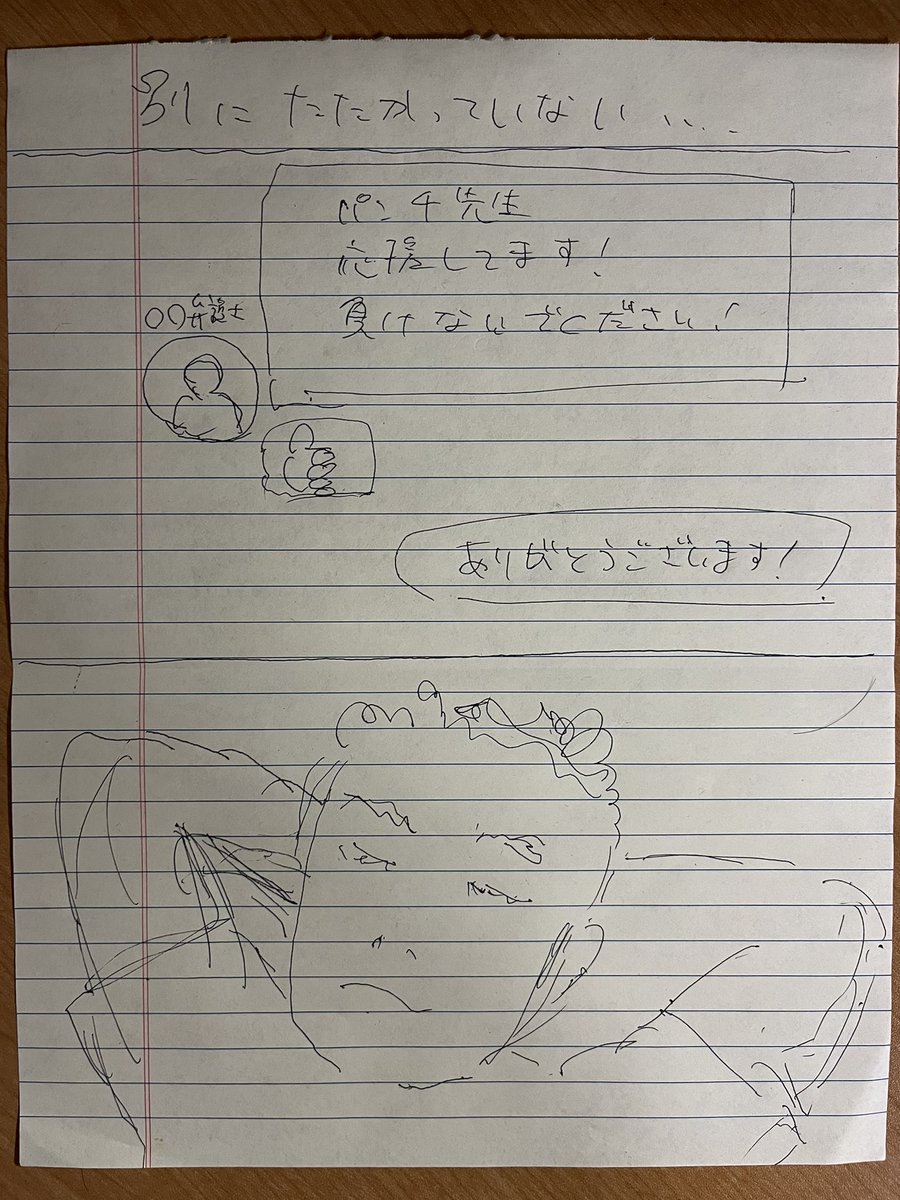 別にたたかっていない...
パンチ先生
応援してます!
負けないでください!
〇〇弁護士
ありがとうございます!